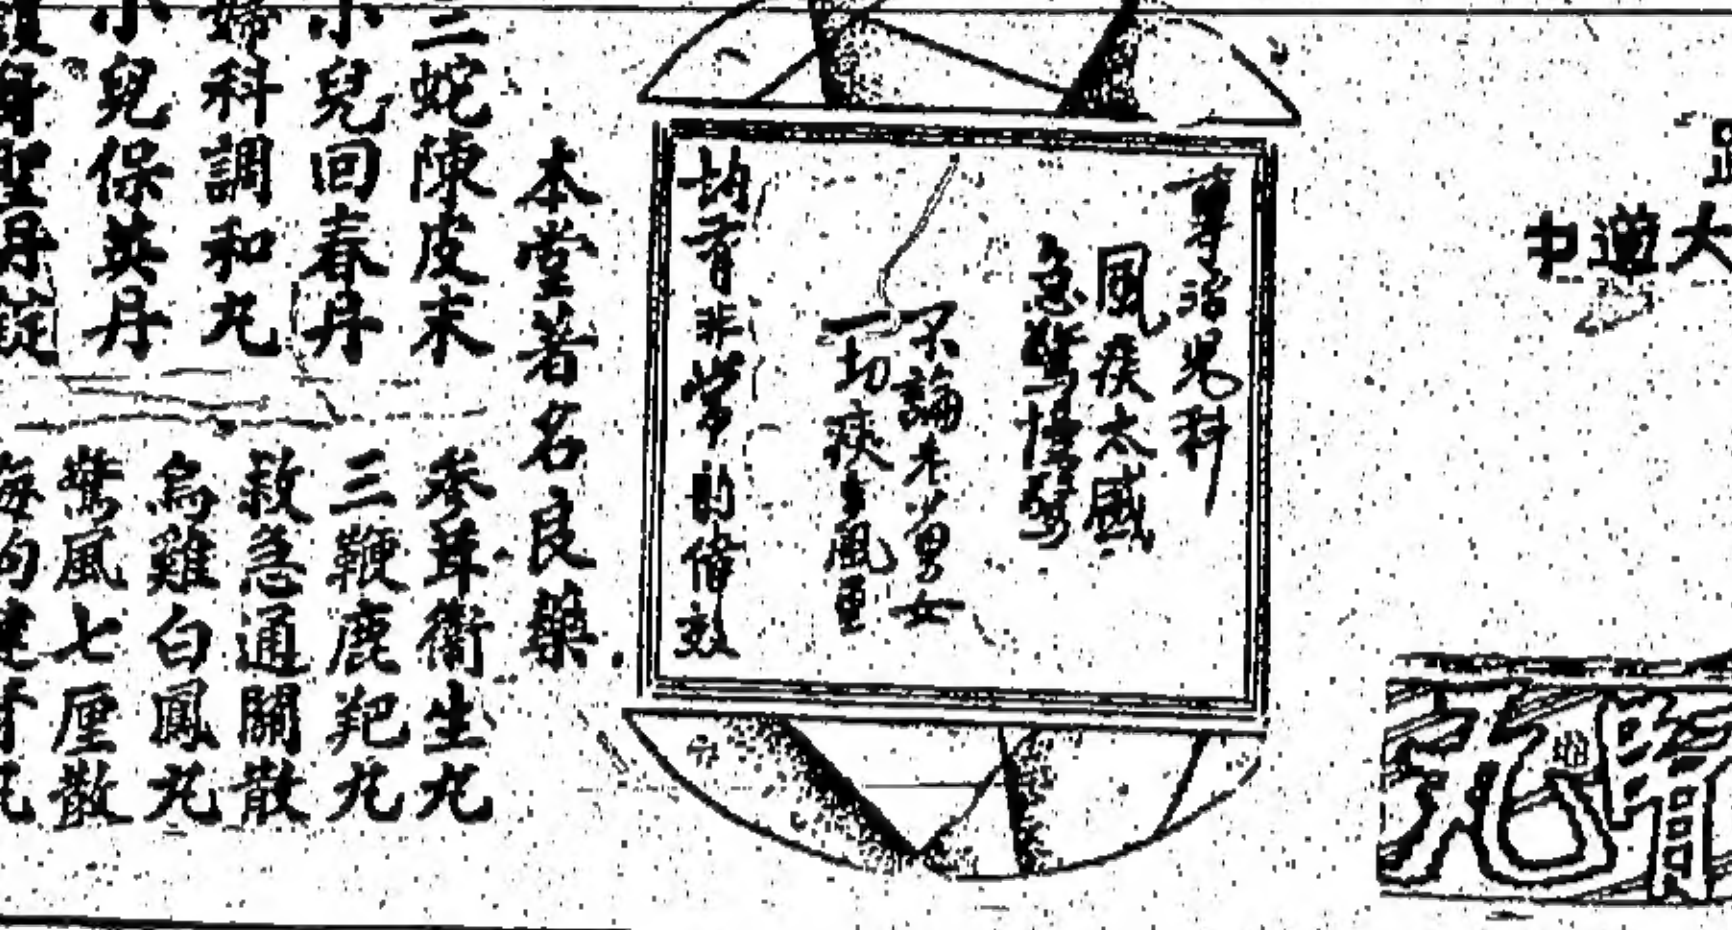 大道中
專治兒科
風痰太盛
急驚慢驚
不論老少男女
一切痰多風重
均有非常的偉效
本堂著名良藥
三蛇陳皮末
小兒回春丹
婦科調和丸
小兒保英丹
聖丹錠
參茸衛生丸
三鞭鹿羓丸
救急通關散
烏雞白鳳丸
驚風七厘散
丸